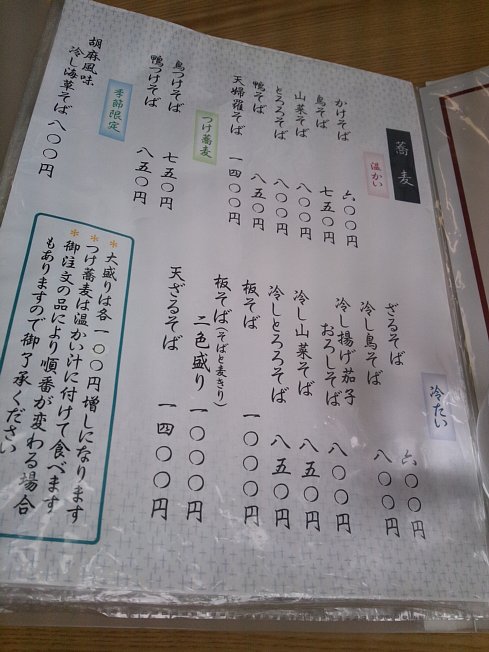 蕎麦
温かい
かけそば 六〇〇円
鳥そば 七五〇円
山菜そば 八〇〇円
とろろそば 八〇〇円
鴨そば 八五〇円
天婦羅そば 一四〇〇円
つけ蕎麦
鳥つけそば 七五〇円
鴨つけそば 八五〇円
季節限定
胡麻風味
冷し海草そば 八〇〇円
冷たい
ざるそば 六〇〇円
冷し鳥そば 八〇〇円
冷し揚げ茄子
おろしそば 八〇〇円
冷し山菜そば 八五〇円
冷しとろろそば 八五〇円
板そば 一〇〇〇円
板そば(そばと麦きり)
二色盛り 一〇〇〇円
天ざるそば 一四〇〇円
＊大盛りは各一〇〇円増しになります
＊つけ蕎麦は温かい汁に付けて食べます
＊御注文の品により順番が変わる場合
もありますので御了承ください